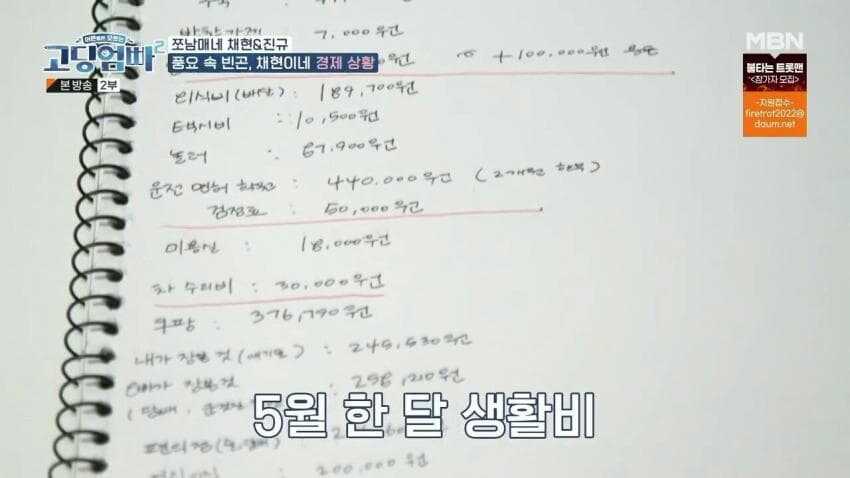 어른들은 모르는
고딩엄빠2
본 방송 2부
쪼남매네 채현&진규
풍요 속 빈곤, 채현이네 경제 상황
MBN
불타는 트롯맨
<참가자 모집>
-지원접수-
firetrot2022@
daum.net
7,000우원
+100,000우원
외식비(배달) : 189,700우원
택시비 : 10,500우원
놀러 67,900우원
운전 면허 학원 : 440.000우원 (2개월 할부)
검정료 : 50,000우원
미용실 : 18,000우원
차 수리비 : 30,000우원
쿠팡 : 376,790우원
내가 장본 것 ( ) : 245,530우원
오빠가 장본것 256,210우원
편의점(
200,000우원
5월 한 달 생활비